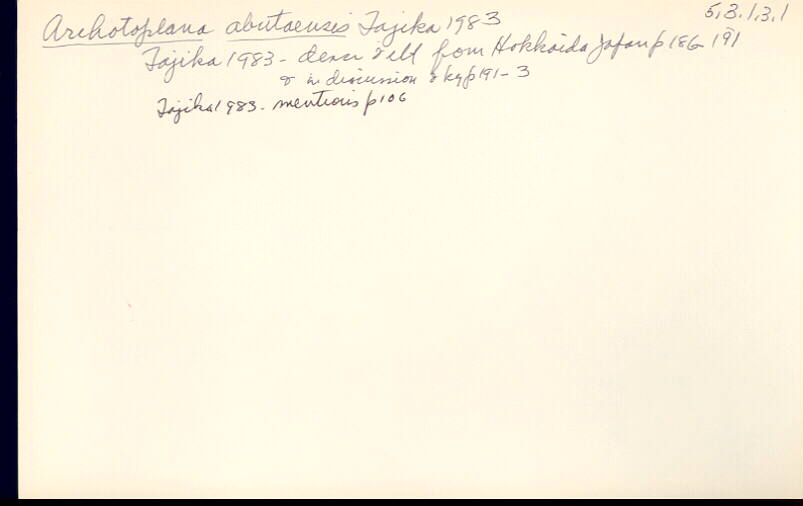 5,3.1,3.1
Archotoplana abutaensis Tajika 1983
Tajika 1983 - descr & ill from Hokkaido Japan p 186-191
& in discussion & key p 191-3
Tajika 1983 - mentions p 106